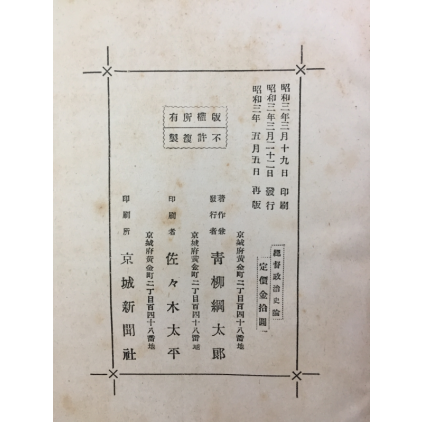 昭和三年三月十九日 印刷
昭和三年三月二十二日 發行
昭和三年 五月五日 再版
版權所有
不許複製
總督政治史論
定價金拾圓
京城府黃金町二丁目百四十八番地
著作兼發行者 青柳綱太郎
京城府黃金町二丁目百四十八番地
印刷者 佐々木太平
印刷所 京城新聞社